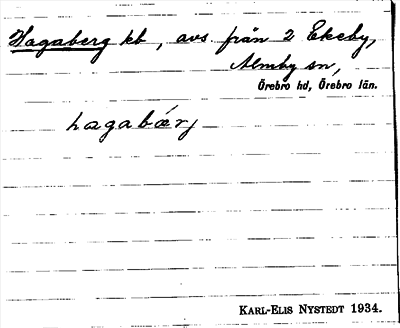 Hagaberg kb, avs. från 2 Ekeby,
Almby sn,
Örebro hd, Örebro län.
hagabærj
KARL-ELIS NYSTEDT 1934.